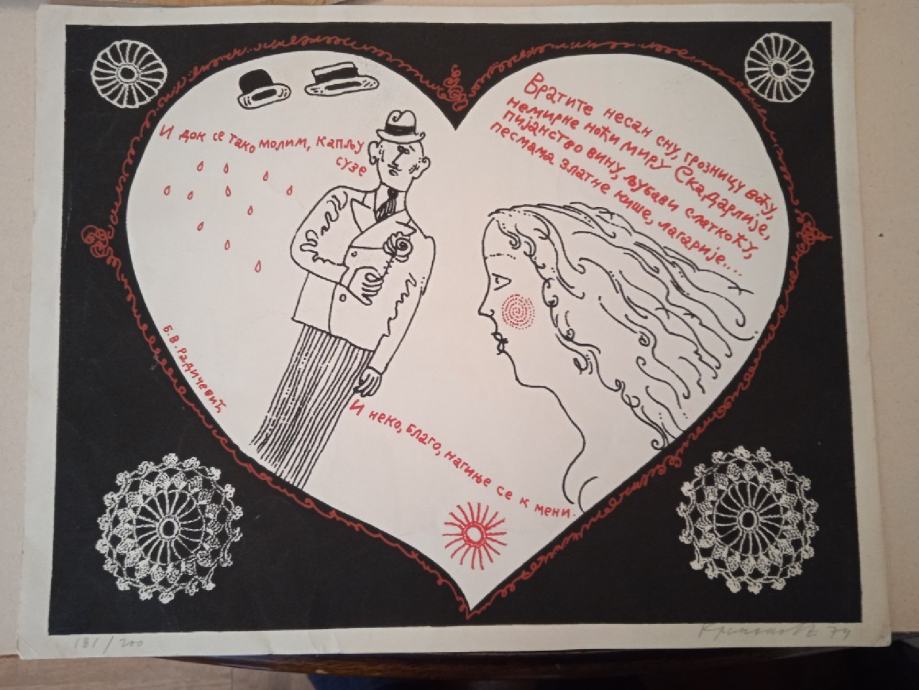 И док се тако молим, капљу
сузе
Вратите несан сну, грозницу воћу,
немирне ноћи миру Скадарлије,
пијанство вину, љубави слаткоћу,
песмама златне кише, лагарије....
Б.В. Радичевић
И неко, благо, нагиње се к мени.
181/200
79